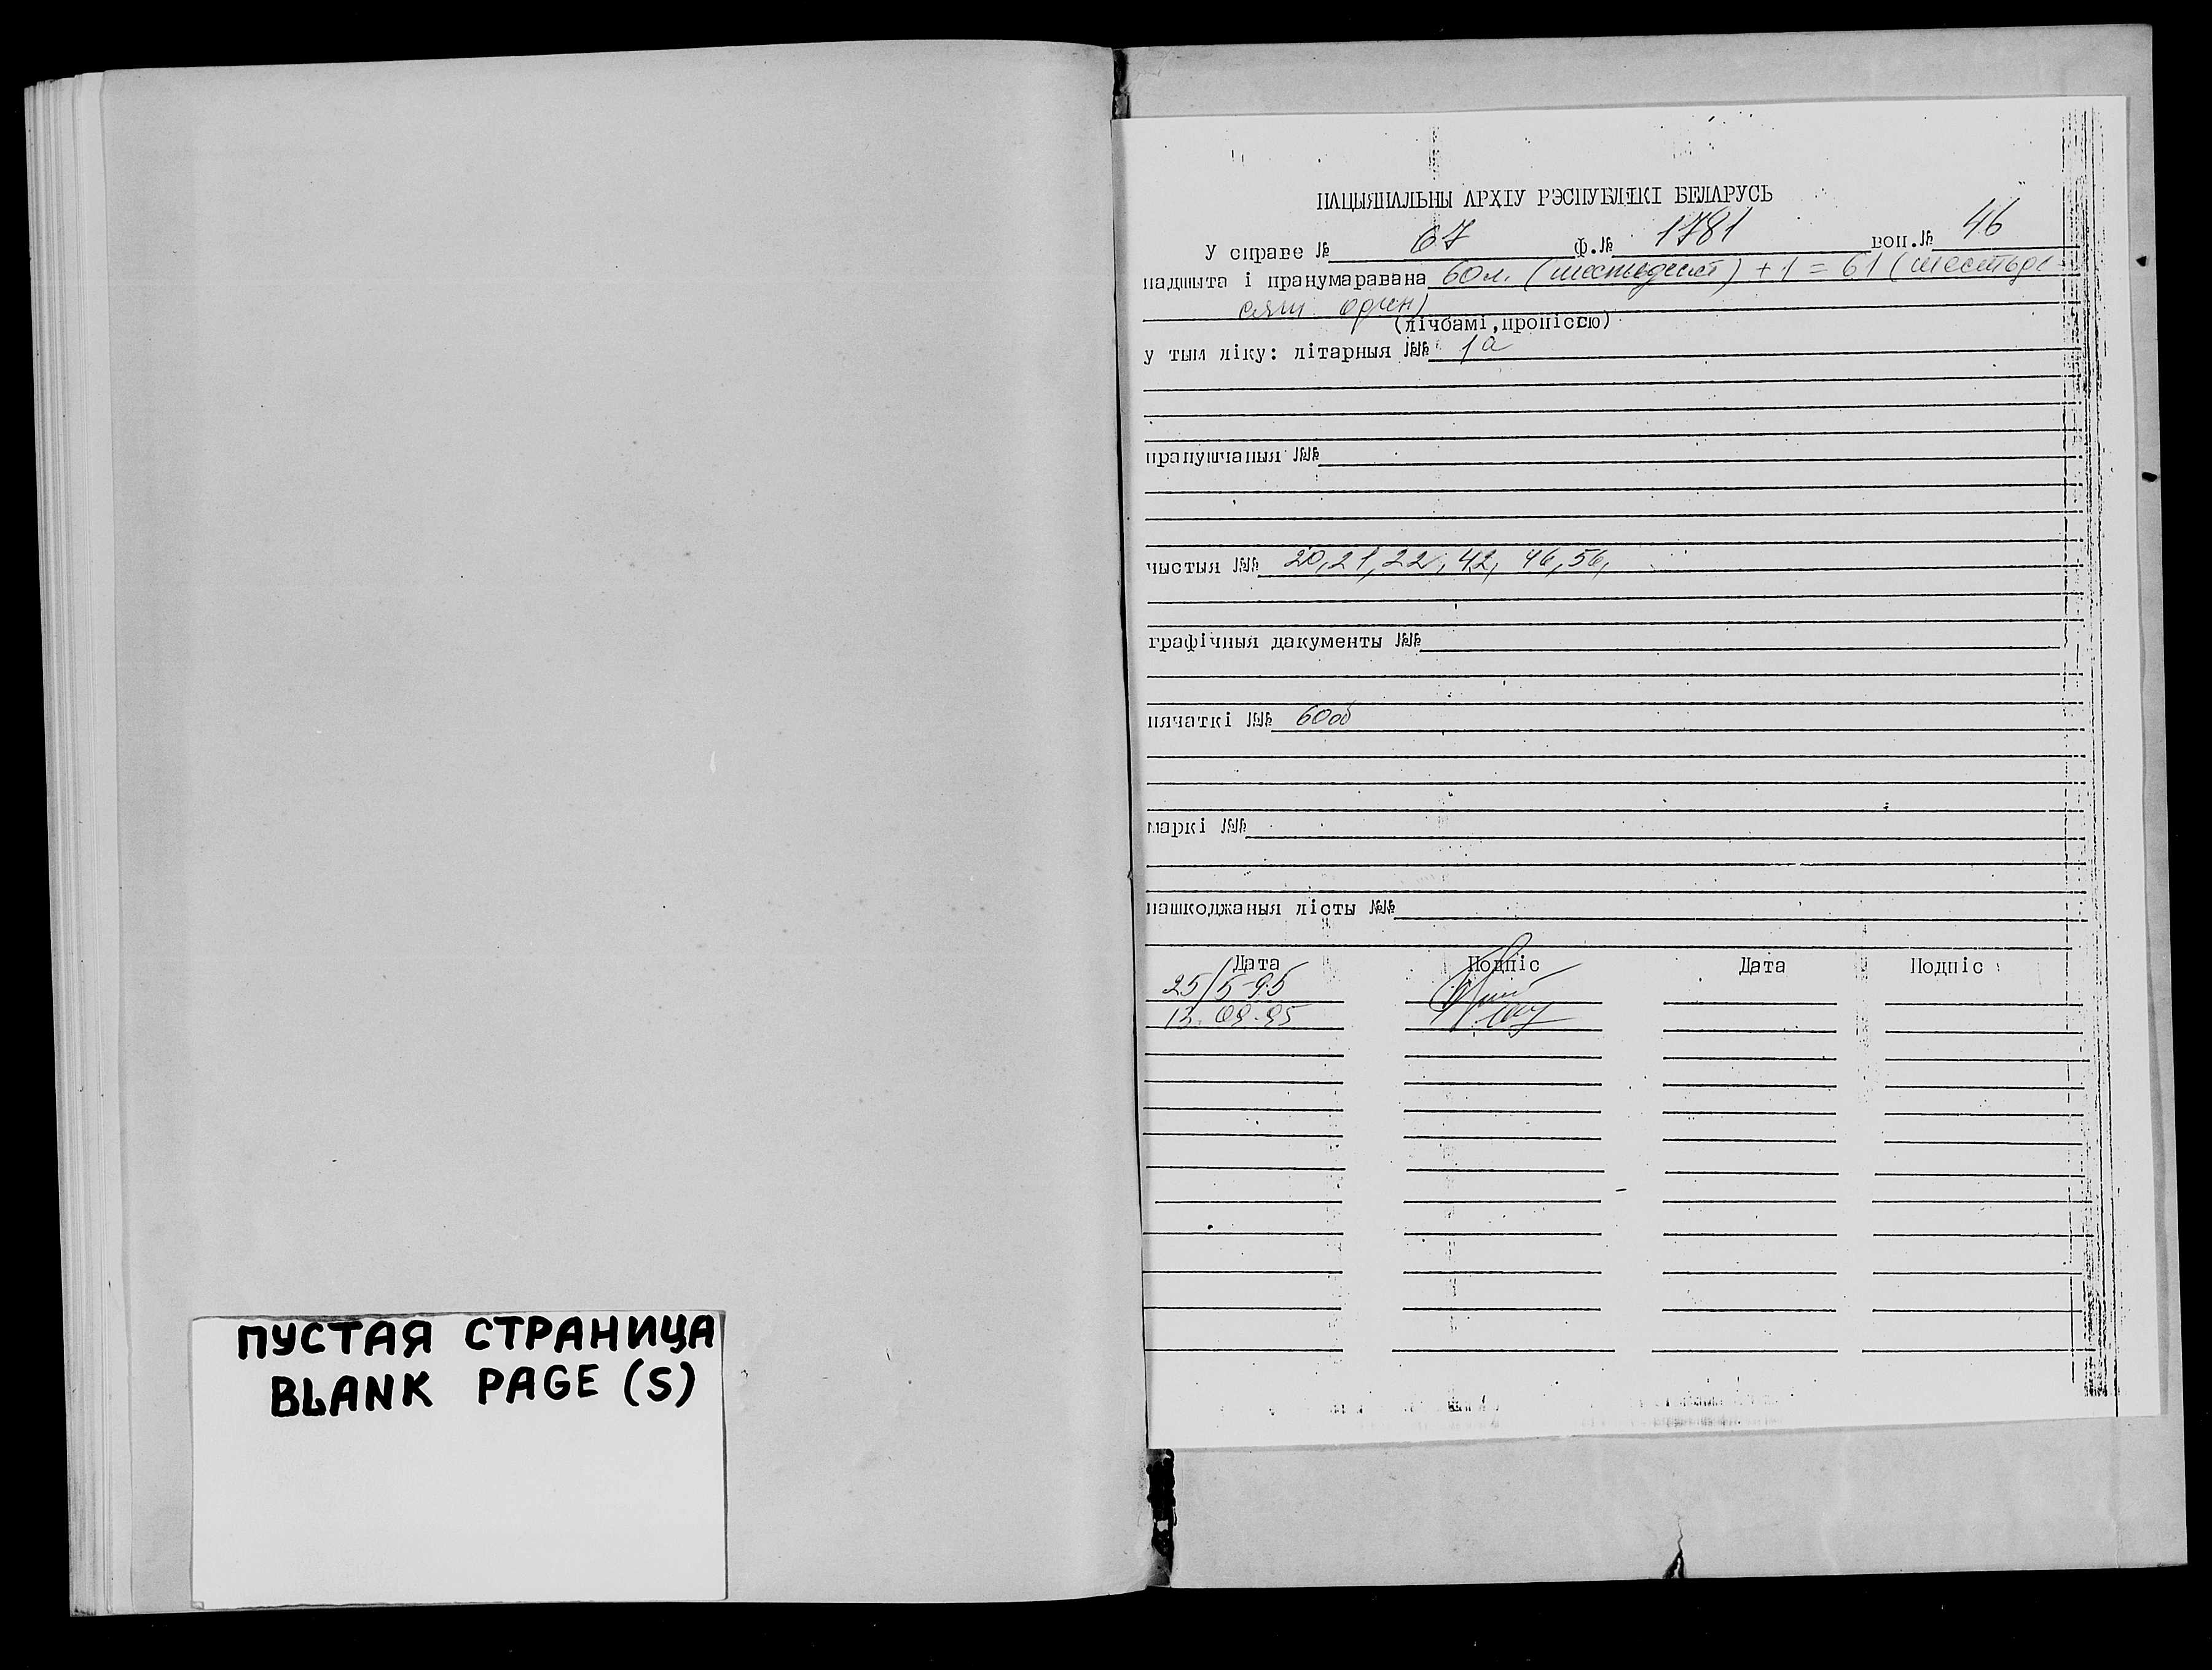 ПУСТАЯ СТРАНИЦА
BLANK PAGE (S)
НАЦЫЯНАЛЬНЫ АРХІУ РЭСПУБЛІКІ БЕЛАРУСЬ
У справе № 67 ф.№ 1781 воп.№ 46
падшыта і пранумаравана 60л. (шестьдесят) + 1 = 61 (шестьде
сят один)
(лічбамі,пропіссю)
у тым ліку: літарныя №№ 1а
прапушчаныя №№
чыстыя №№ 20, 21, 22, 42, 46, 56,
графічныя дакументы №№
пячаткі №№ 60об
маркі №№
пашкоджаныя лісты №№
Дата Подпіс Дата Подпіс
25/5-95
13.09.95